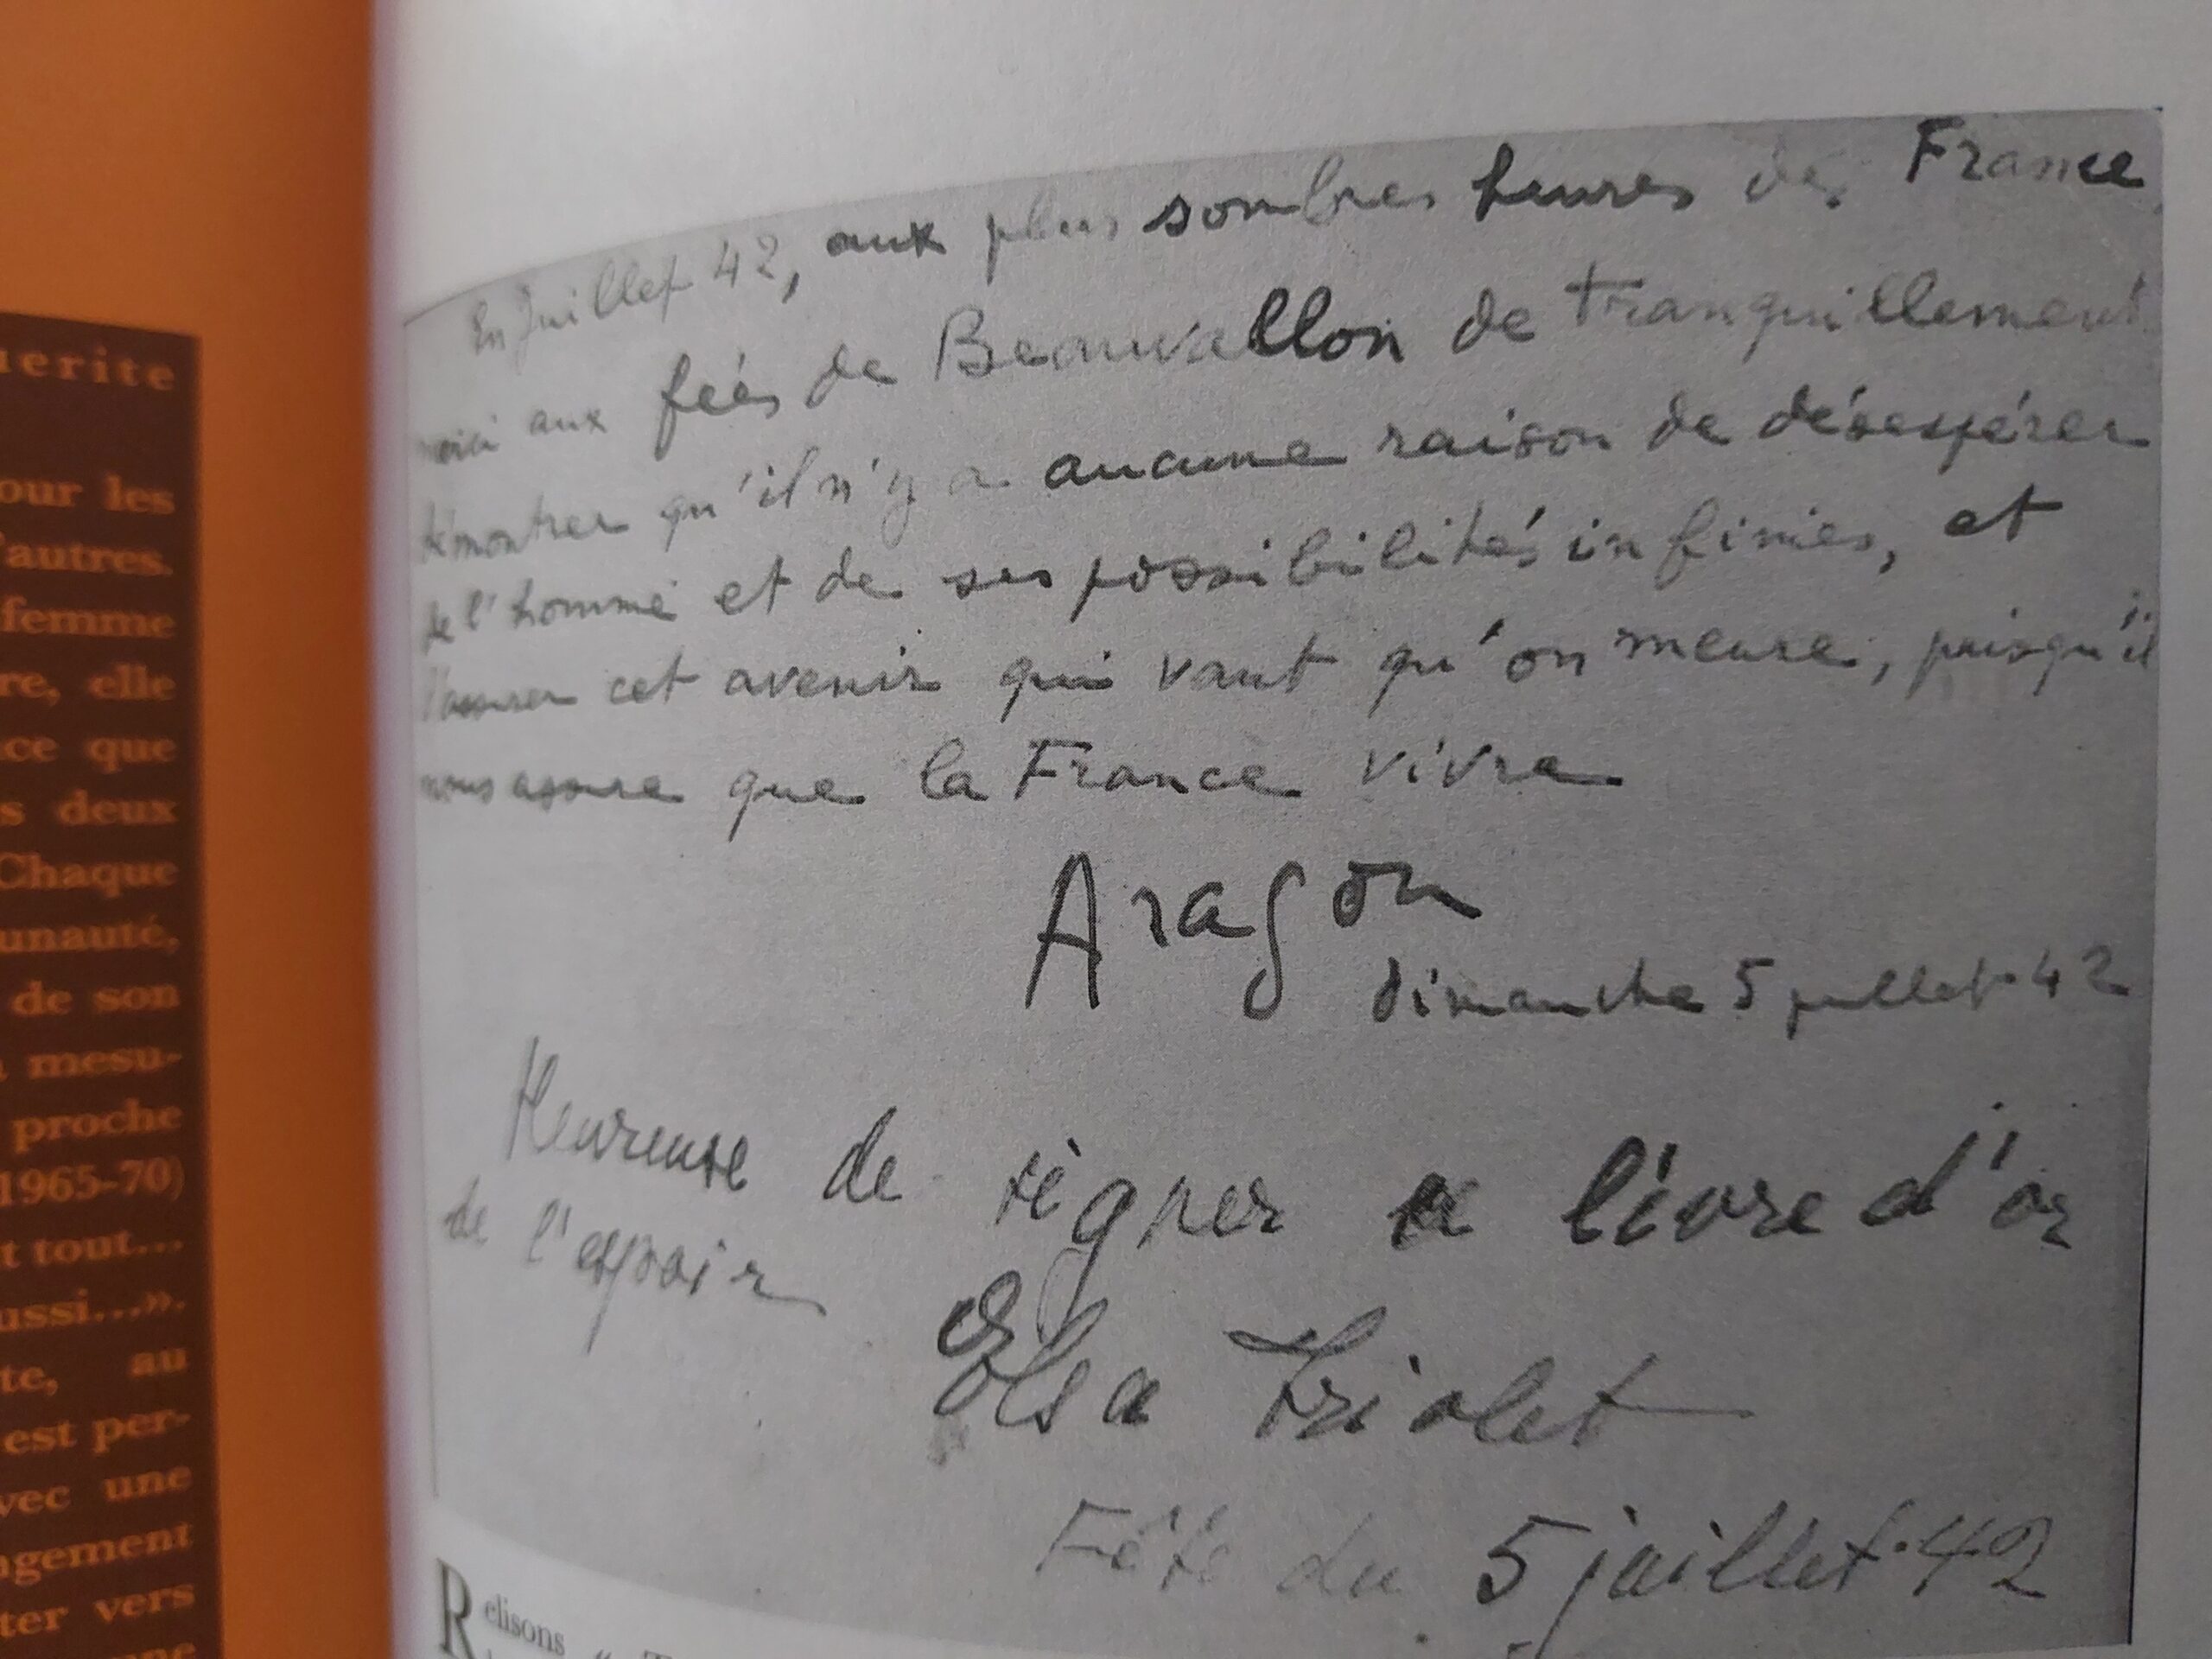 uerite
our les
'autres.
femme
re, elle
ce que
s deux
Chaque
unauté,
de son
mesu-
proche
1965-70)
t tout...
ussi...».
te, au
est per-
vec une
ngement
ter vers
En Juillet 42, aux plus sombres heures de France,
merci aux fées de Beauvallon de tranquillement
démontrer qu'il n'y a aucune raison de désespérer
de l'homme et de ses possibilités infinies, et
d'assurer cet avenir qui vaut qu'on meure, puisqu'il
nous assure que la France vivra
Aragon
dimanche 5 juillet 42
Heureuse de signer ce livre d'or
de l'espoir
Elsa Triolet
Fête du 5 juillet 42
Relisons